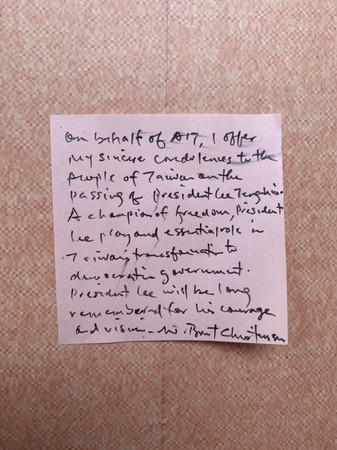 On behalf of AIT, I offer
my sincere condolences to the
people of Taiwan on the
passing of President Lee Tenghui.
A champion of freedom, President
Lee play and essential role in
Taiwan's transformation to
democratic government.
President Lee will be long
remembered for his courage
and vision. - W. Brent Christensen